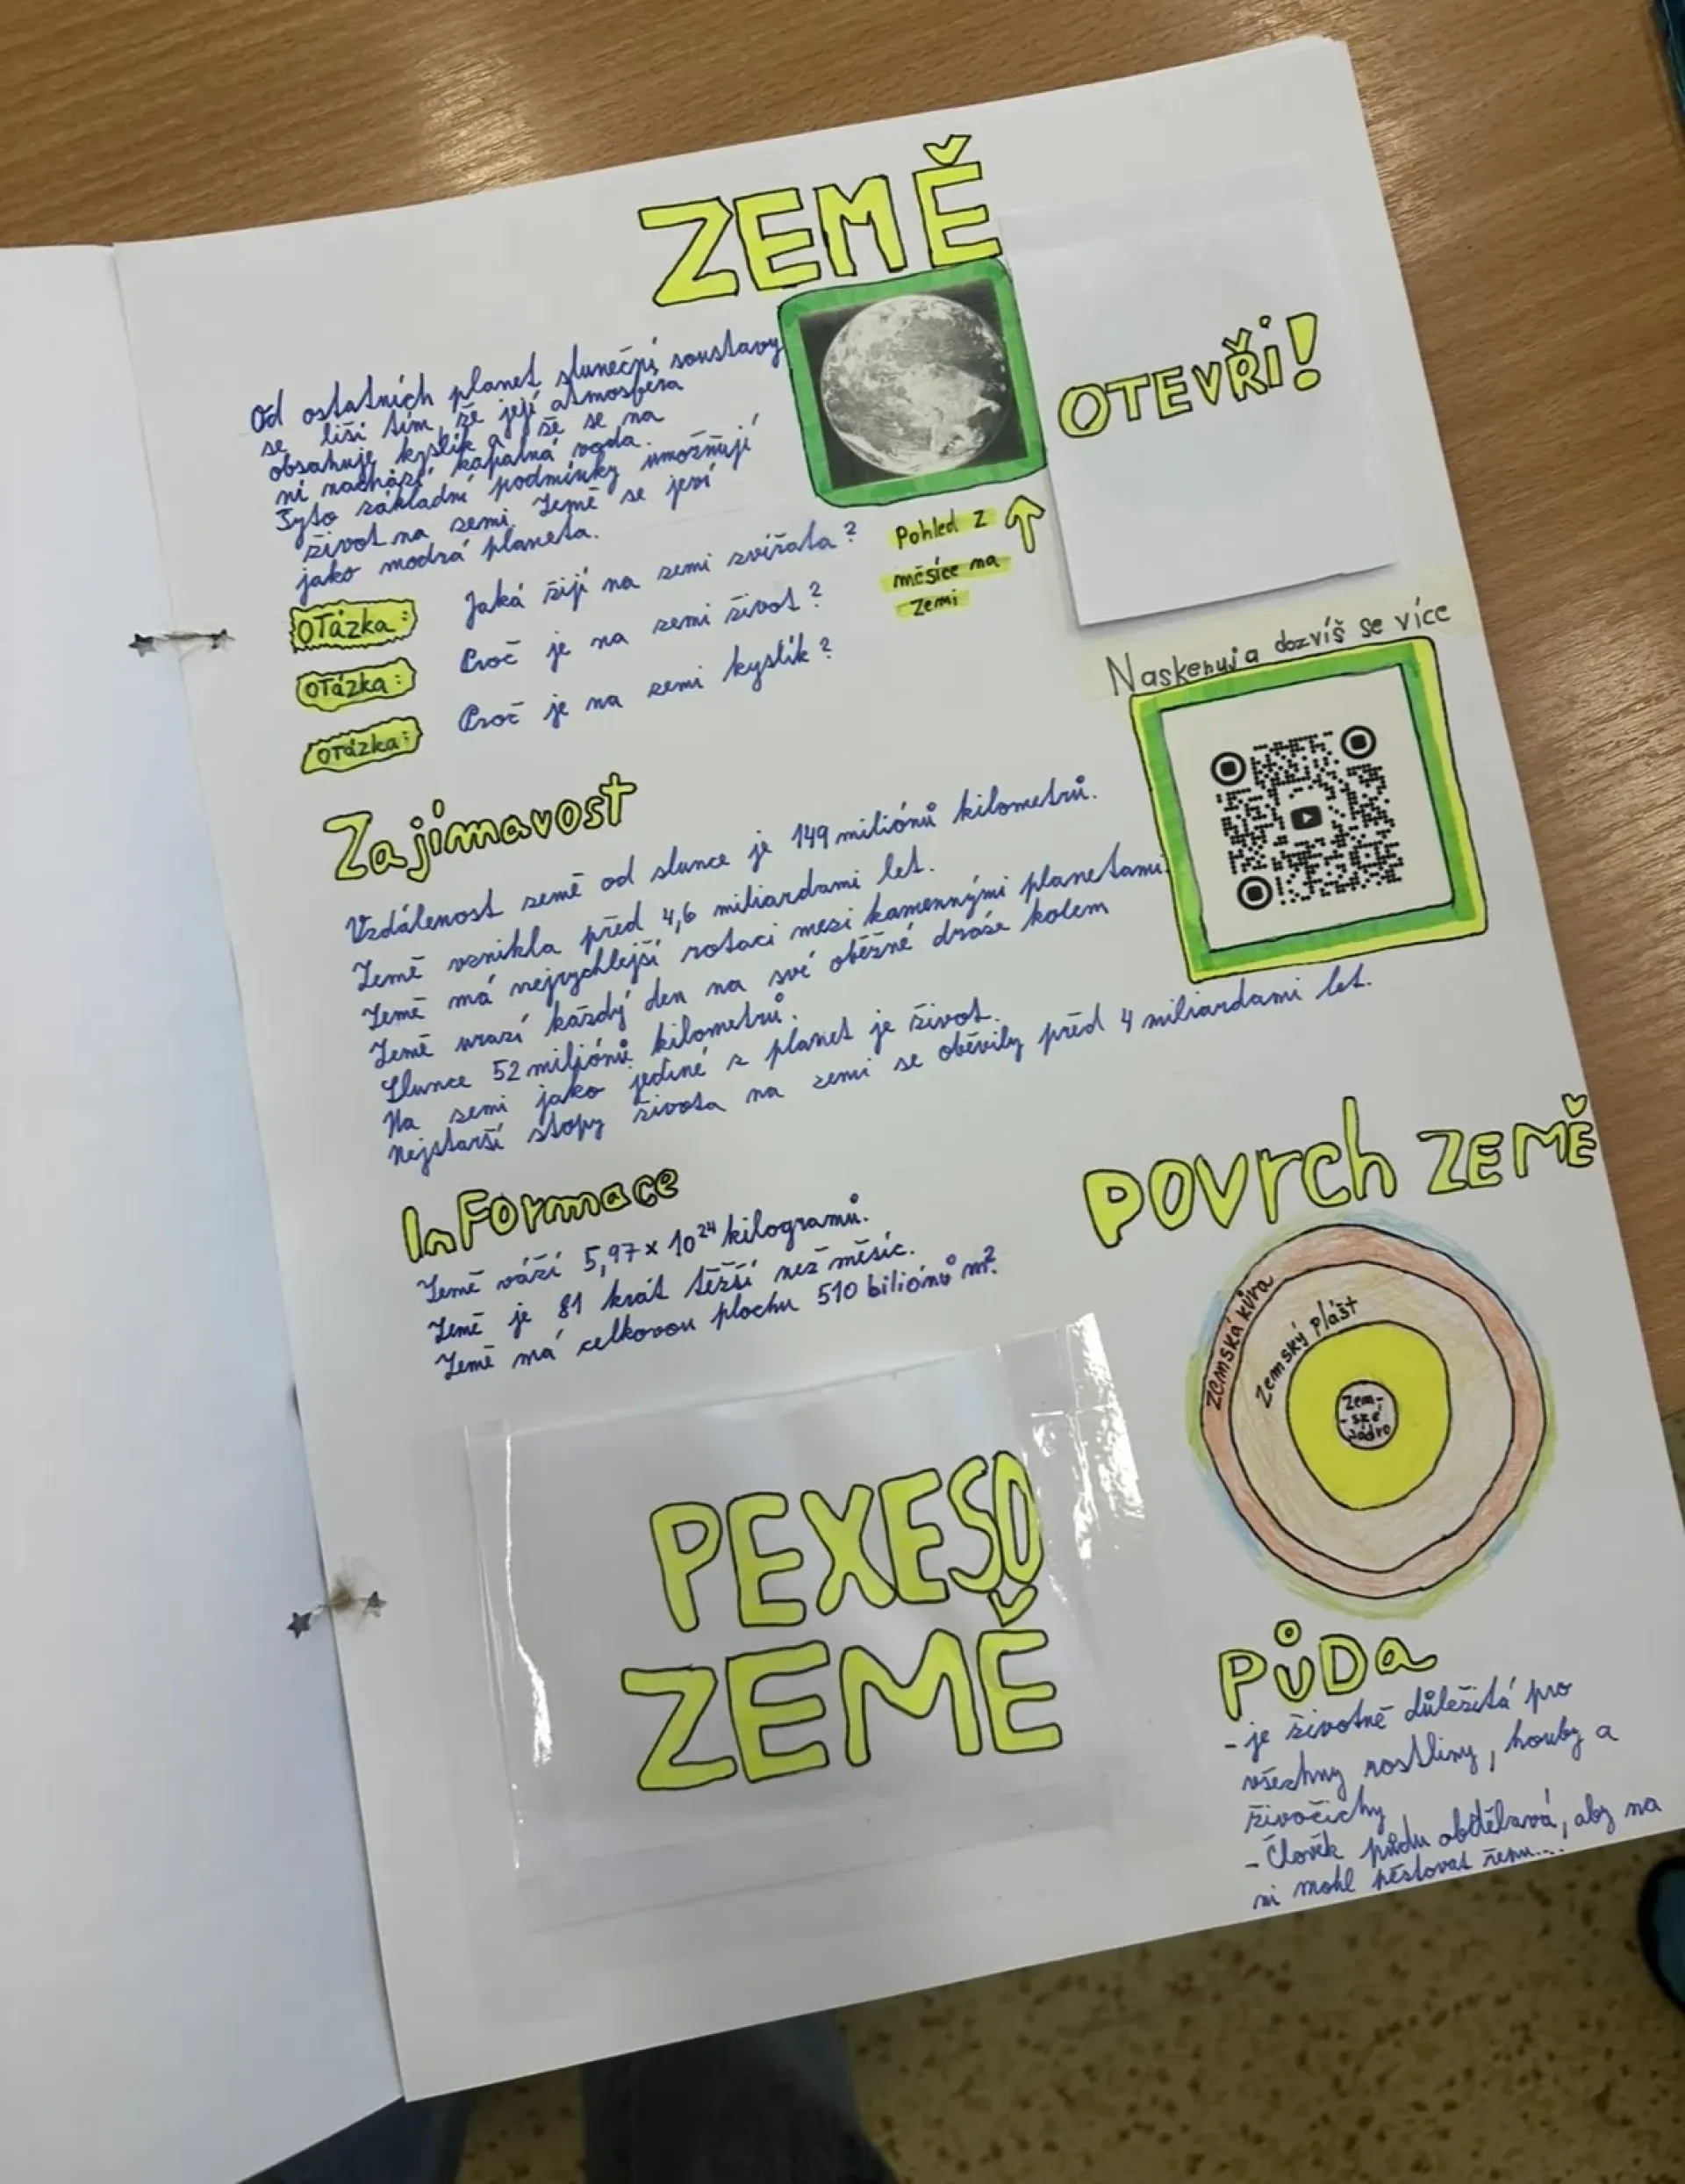 ZEMĚ
Od ostatních planet sluneční soustavy
se liší tím, že její atmosféra
obsahuje kyslík a že se na
ní nachází kapalná voda.
Tyto základní podmínky umožňují
život na zemi. Země se jeví
jako modrá planeta.
OTEVŘi!
Pohled z
měsíce na
Zemi
Otázka: Jaká žijí na zemi zvířata?
Otázka: Proč je na zemi život?
Otázka: Proč je na zemi kyslík?
Naskenuj a dozvíš se více
Zajímavost
Vzdálenost země od slunce je 149 miliónů kilometrů.
Země vznikla před 4,6 miliardami let.
Země má nejrychlejší rotaci mezi kamennými planetami.
Země urazí každý den na své oběžné dráze kolem
Slunce 52 miliónů kilometrů.
Na zemi jako jediné z planet je život.
Nejstarší stopy života na zemi se oběvily před 4 miliardami let.
Informace
Země váží 5,97 x 10²⁴ kilogramů.
Země je 81 krát těžší než měsíc.
Země má celkovou plochu 510 biliónů m².
POVrch ZEMĚ
Zemská kůra
Zemský plášť
Zem-
-ské
jádro
PEXESO
ZEMĚ
PůDa
- je životně důležitá pro
všechny rostliny, houby a
živočichy
- Člověk půdu obdělává, aby na
ní mohl pěstovat řepu...